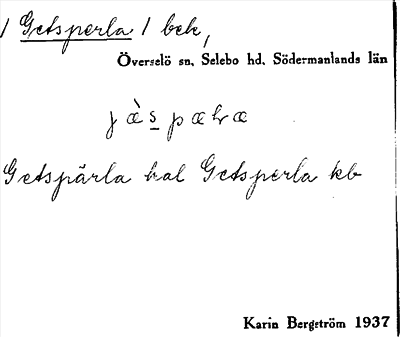 / Getsperla / bek,
Överselö sn. Selebo hd. Södermanlands län
Getspärla hal Getsperla kb
Karin Bergström 1937